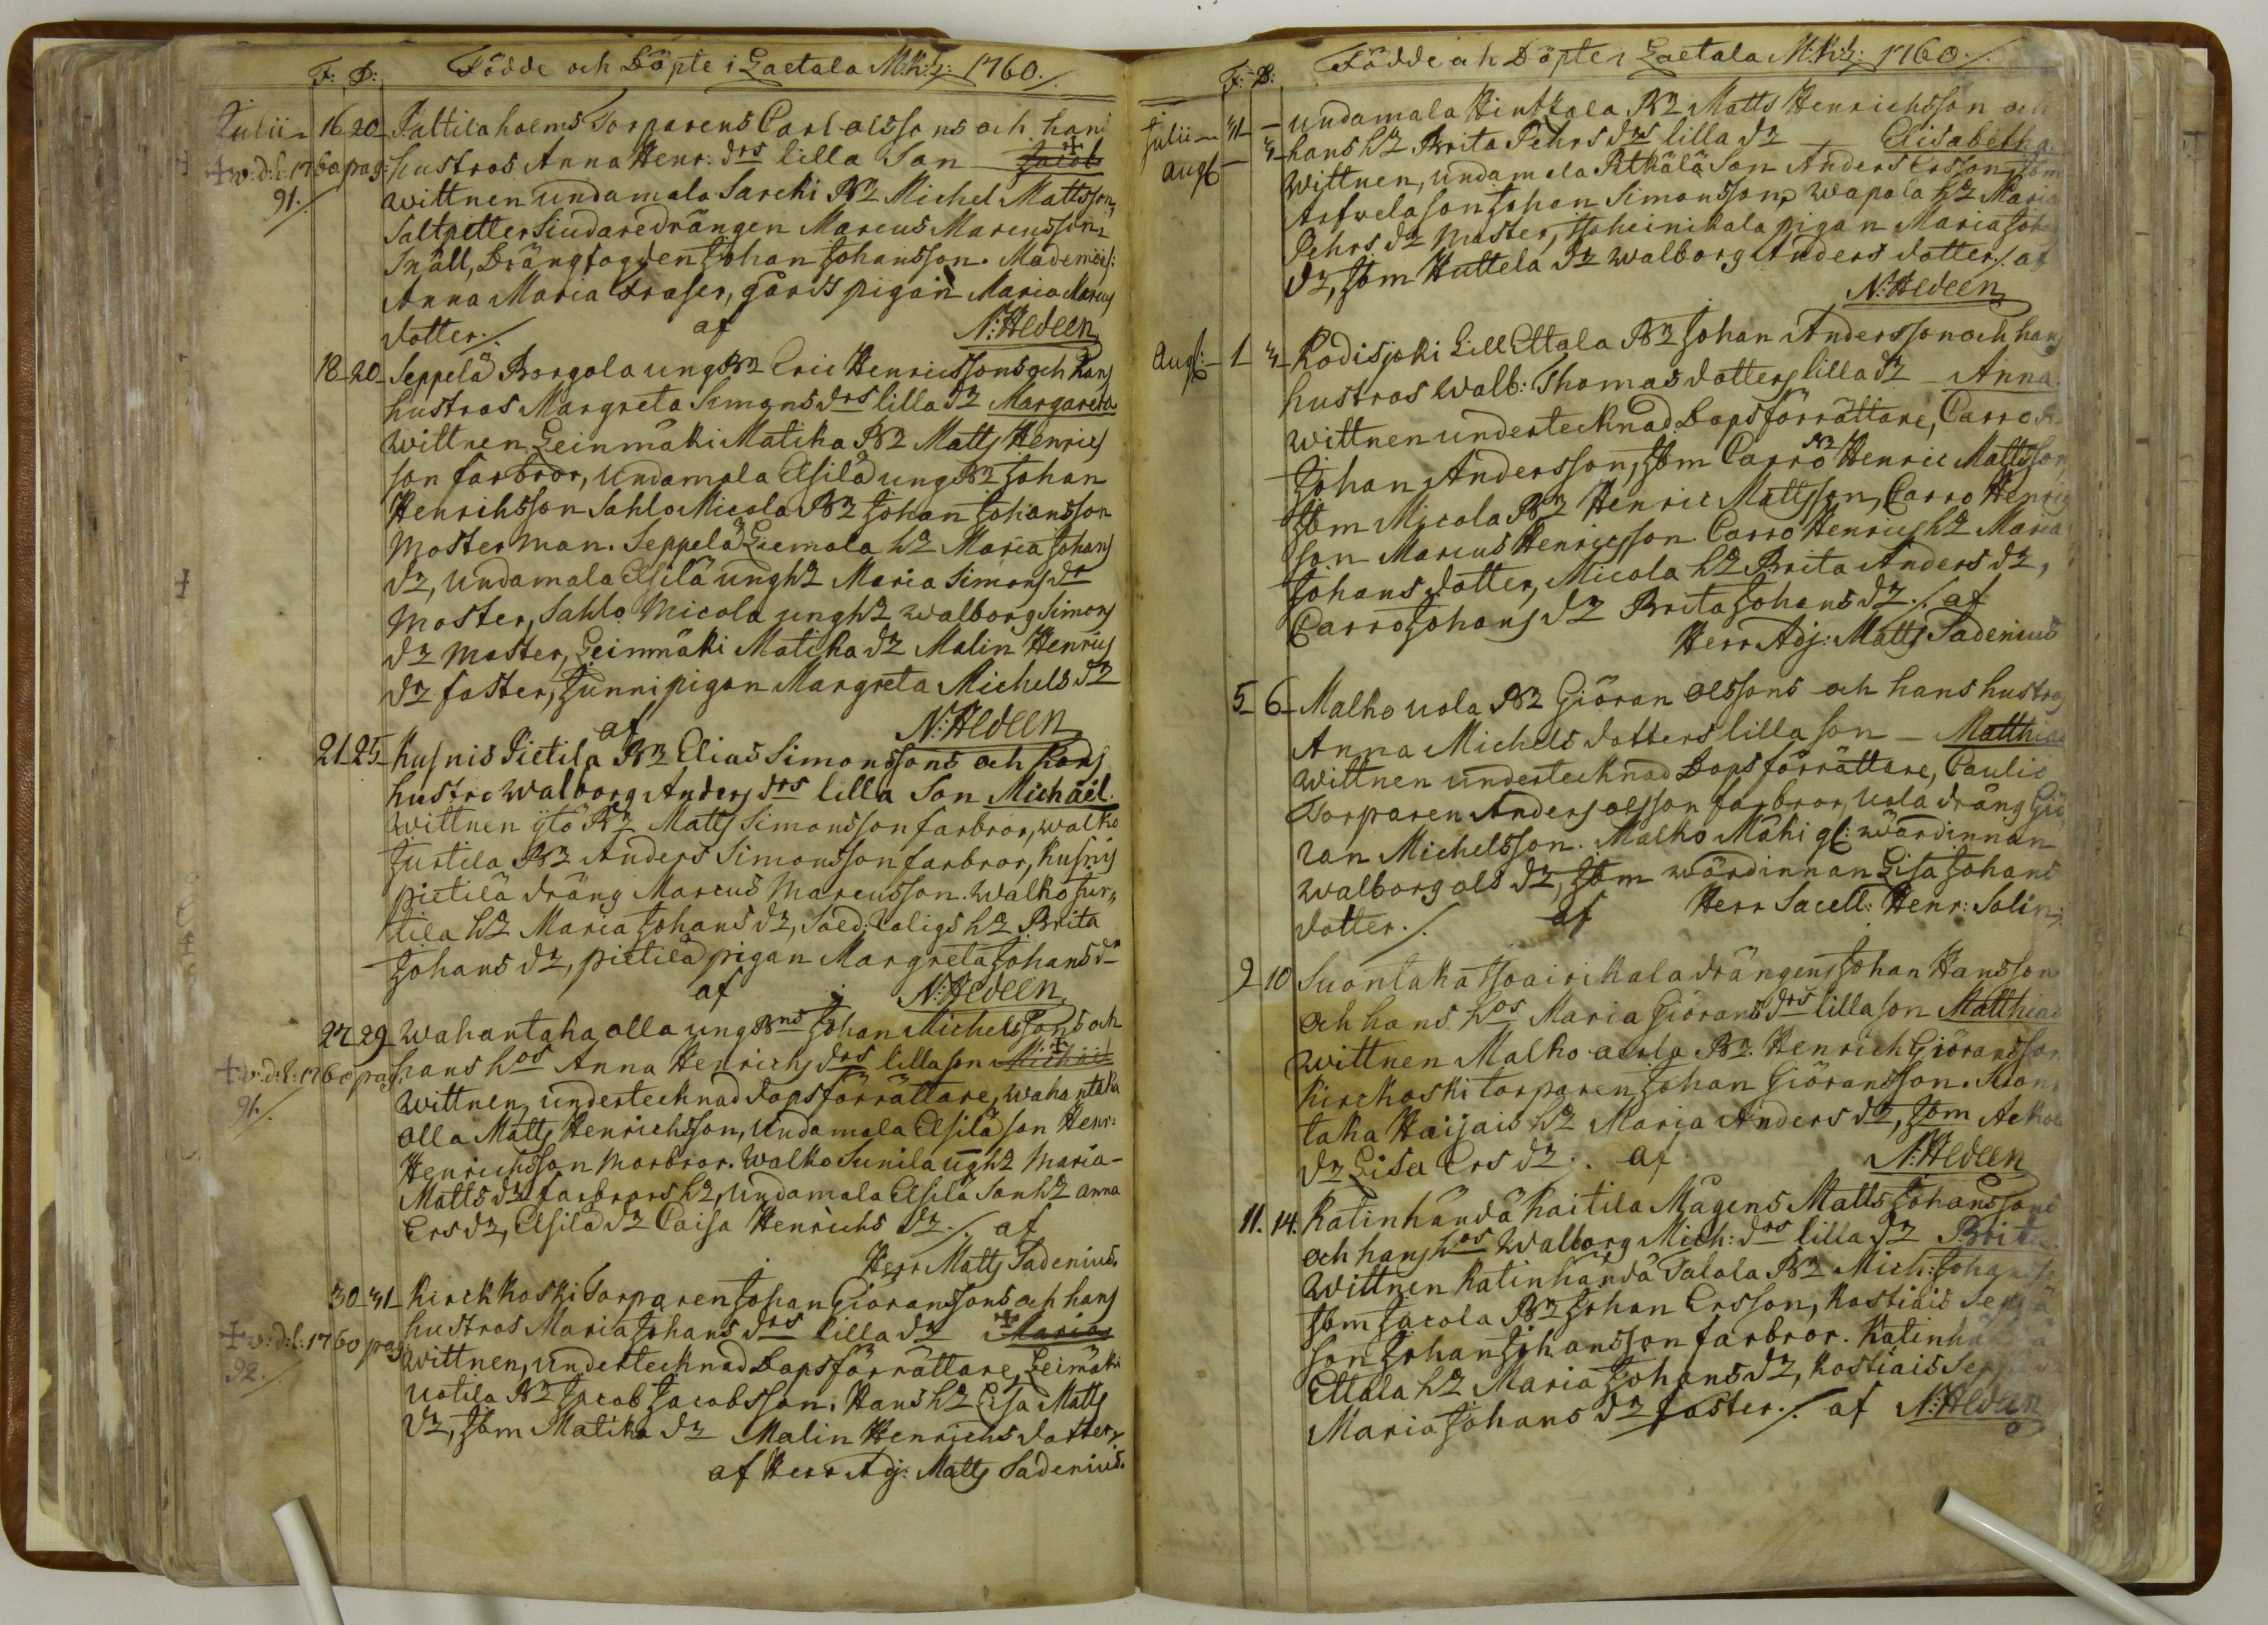 F: D: Födde och Döpte i Laetala M:K:g: 1760./
Julii 16 20 Pattilaholms Torparens Carl Olssons och hans
+ v:d:l:1760 pag: hustros Anna Henr: drs lilla Son Jacob
91./ wittnen undamala Sarcki Bn Michel Mattsson,
Saltpetter Siudaredrängen Marcus Marcusson
Snäll, Drängfogden Johan Johansson. Mademois:
Anna Maria Fraser, gårds pigan Maria Marcus
dotter./ af N: Hedeen
18 20 Seppelä Borgola ung Bn Eric Henricssons och hans
hustros Margreta Simons drs lilla dr Margareta
wittnen Leinmäki Matika Bn Matts Henrics
son farbror, undamala Elsilä ung Bn Johan
Henrichsson Sahlo Micola Bn Johan Johansson
Moster man. Seppelä Liemola h: Maria Johans
dr, undamala Elsilä ungh: Maria Simons dr
Moster, Sahlo Micola ungh: walborg Simons
dr Moster, Leinmäki Matika dr Malin Henrics
dr faster, Junni pigan Margreta Michels dr
af N: Hedeen
21 25 Kusnis Pietila Bn Elias Simonssons och hans
hustro walborg Anders drs lilla Son Michäel.
wittnen ytö Bn Matts Simonsson farbror, walko
Jurtila Bn Anders Simonsson farbror, Kusnis
pietilä dräng Marcus Marcusson. walko Jur„
tila h: Maria Johans dr, Sold: Caligs h: Brita
Johans dr, pietilä pigan Margreta Johans dr
af N: Hedeen
27 29 wahantaka olla ung Bns Johan Michelssons och
+ v:d:l:1760 pag: hans hos Anna Henrichs drs lilla son Michäel
91./ wittnen, undertecknad dopsförrättare, wahantaka
olla Matts Henrichsson, undamala Elsilä son Henr:
Henrichsson Morbror. walko Sunila ungh: Maria
Matts dr farbrors h:, undamala Elsilä Sonh: Anna
Ers dr, Elsilä dr Caisa Henrichs dr./ af
Herr Matts Sadenius.
30 31 Kirckkoski Torparen Johan Giöranssons och hans
hustros Maria Johans drs lilla dr Maria
+ v:d:l:1760 pag: wittnen, undertecknad Dopsförrättare, Leimäki
92./ uotila Bn Jacob Jacobsson. Hans h: Lisa Matts
dr, Jbm Matika dr Malin Henrichs dotter,
af Herr Adj: Matts Sadenius.
F: D: Födde och Döpte i Laetala M:K:g: 1760./
Julii 31 undamala Hintzala Bn Matts Henrichsson och
Augt 3 hans h: Brita Pehrs drs lilla dr Elisabetha
wittnen, undamala Pitkälä Son Anders Ersson, Jbm
Arfvela son Johan Simonsson, wapala h: Maria
Pehrs dr Moster, pigan Maria Johans
dr, Jbm Huttela dr walborg Anders dotter./ af
N: Hedeen
Augt: 1 3 Kodisjoki Lill Ettala Bn Johan Andersson och hans
hustros walb: Thomas dotters lilla dr Anna.
wittnen undertecknad Dopsförrättare, Carro
Johan Andersson, Jbm Carro Bn Henric Mattsson
Jbm Micola Bn Henric Mattsson, Carro Henrics
son Marcus Henricsson Carro Henrics h: Maria
Johans dotter, Micola h: Brita Anders dr,
Carro Johans dr Brita Johans dr./ af
Herr Adj: Matts Sadenius
5 6 Malko uola Bn Giöran Olssons och hans hustros
Anna Michels dotters lilla son Matthias
wittnen undertecknad Dopsförrättare, Caulio
Torparen Anders Olsson farbror, uola dräng Giö
ran Michelsson. Malko Mäki gl: wärdinnan
walborg Ols dr, Jbm wärdinnan Lisa Johans
dotter./ af Herr Sacell: Henr: Salin:
9 10 Suontaka drängens Johan Hansson
och hans hos Maria Giörans drs lilla son Matthias
wittnen Malko Bn Henrich Giöransson
Kirckoski torparen Johan Giöransson. Suon
taka Haijais h: Maria Anders dr, Jbm
dr Lisa Ers dr. af N: Hedeen
11. 14. Katinhändä Kaitila Mågens Matts Johanssons
och hans hos Walborg Mich: drs lilla dr Brita
wittnen Katinhändä Talola Bn Mich: Johansson
Jbm Jacola Bn Johan Ersson, Kostiais Seppä
son Johan Johansson farbror. Katinhändä
Ettala h: Maria Johans dr, Kostiais
Maria Johans dr faster./ af N: Hedeen